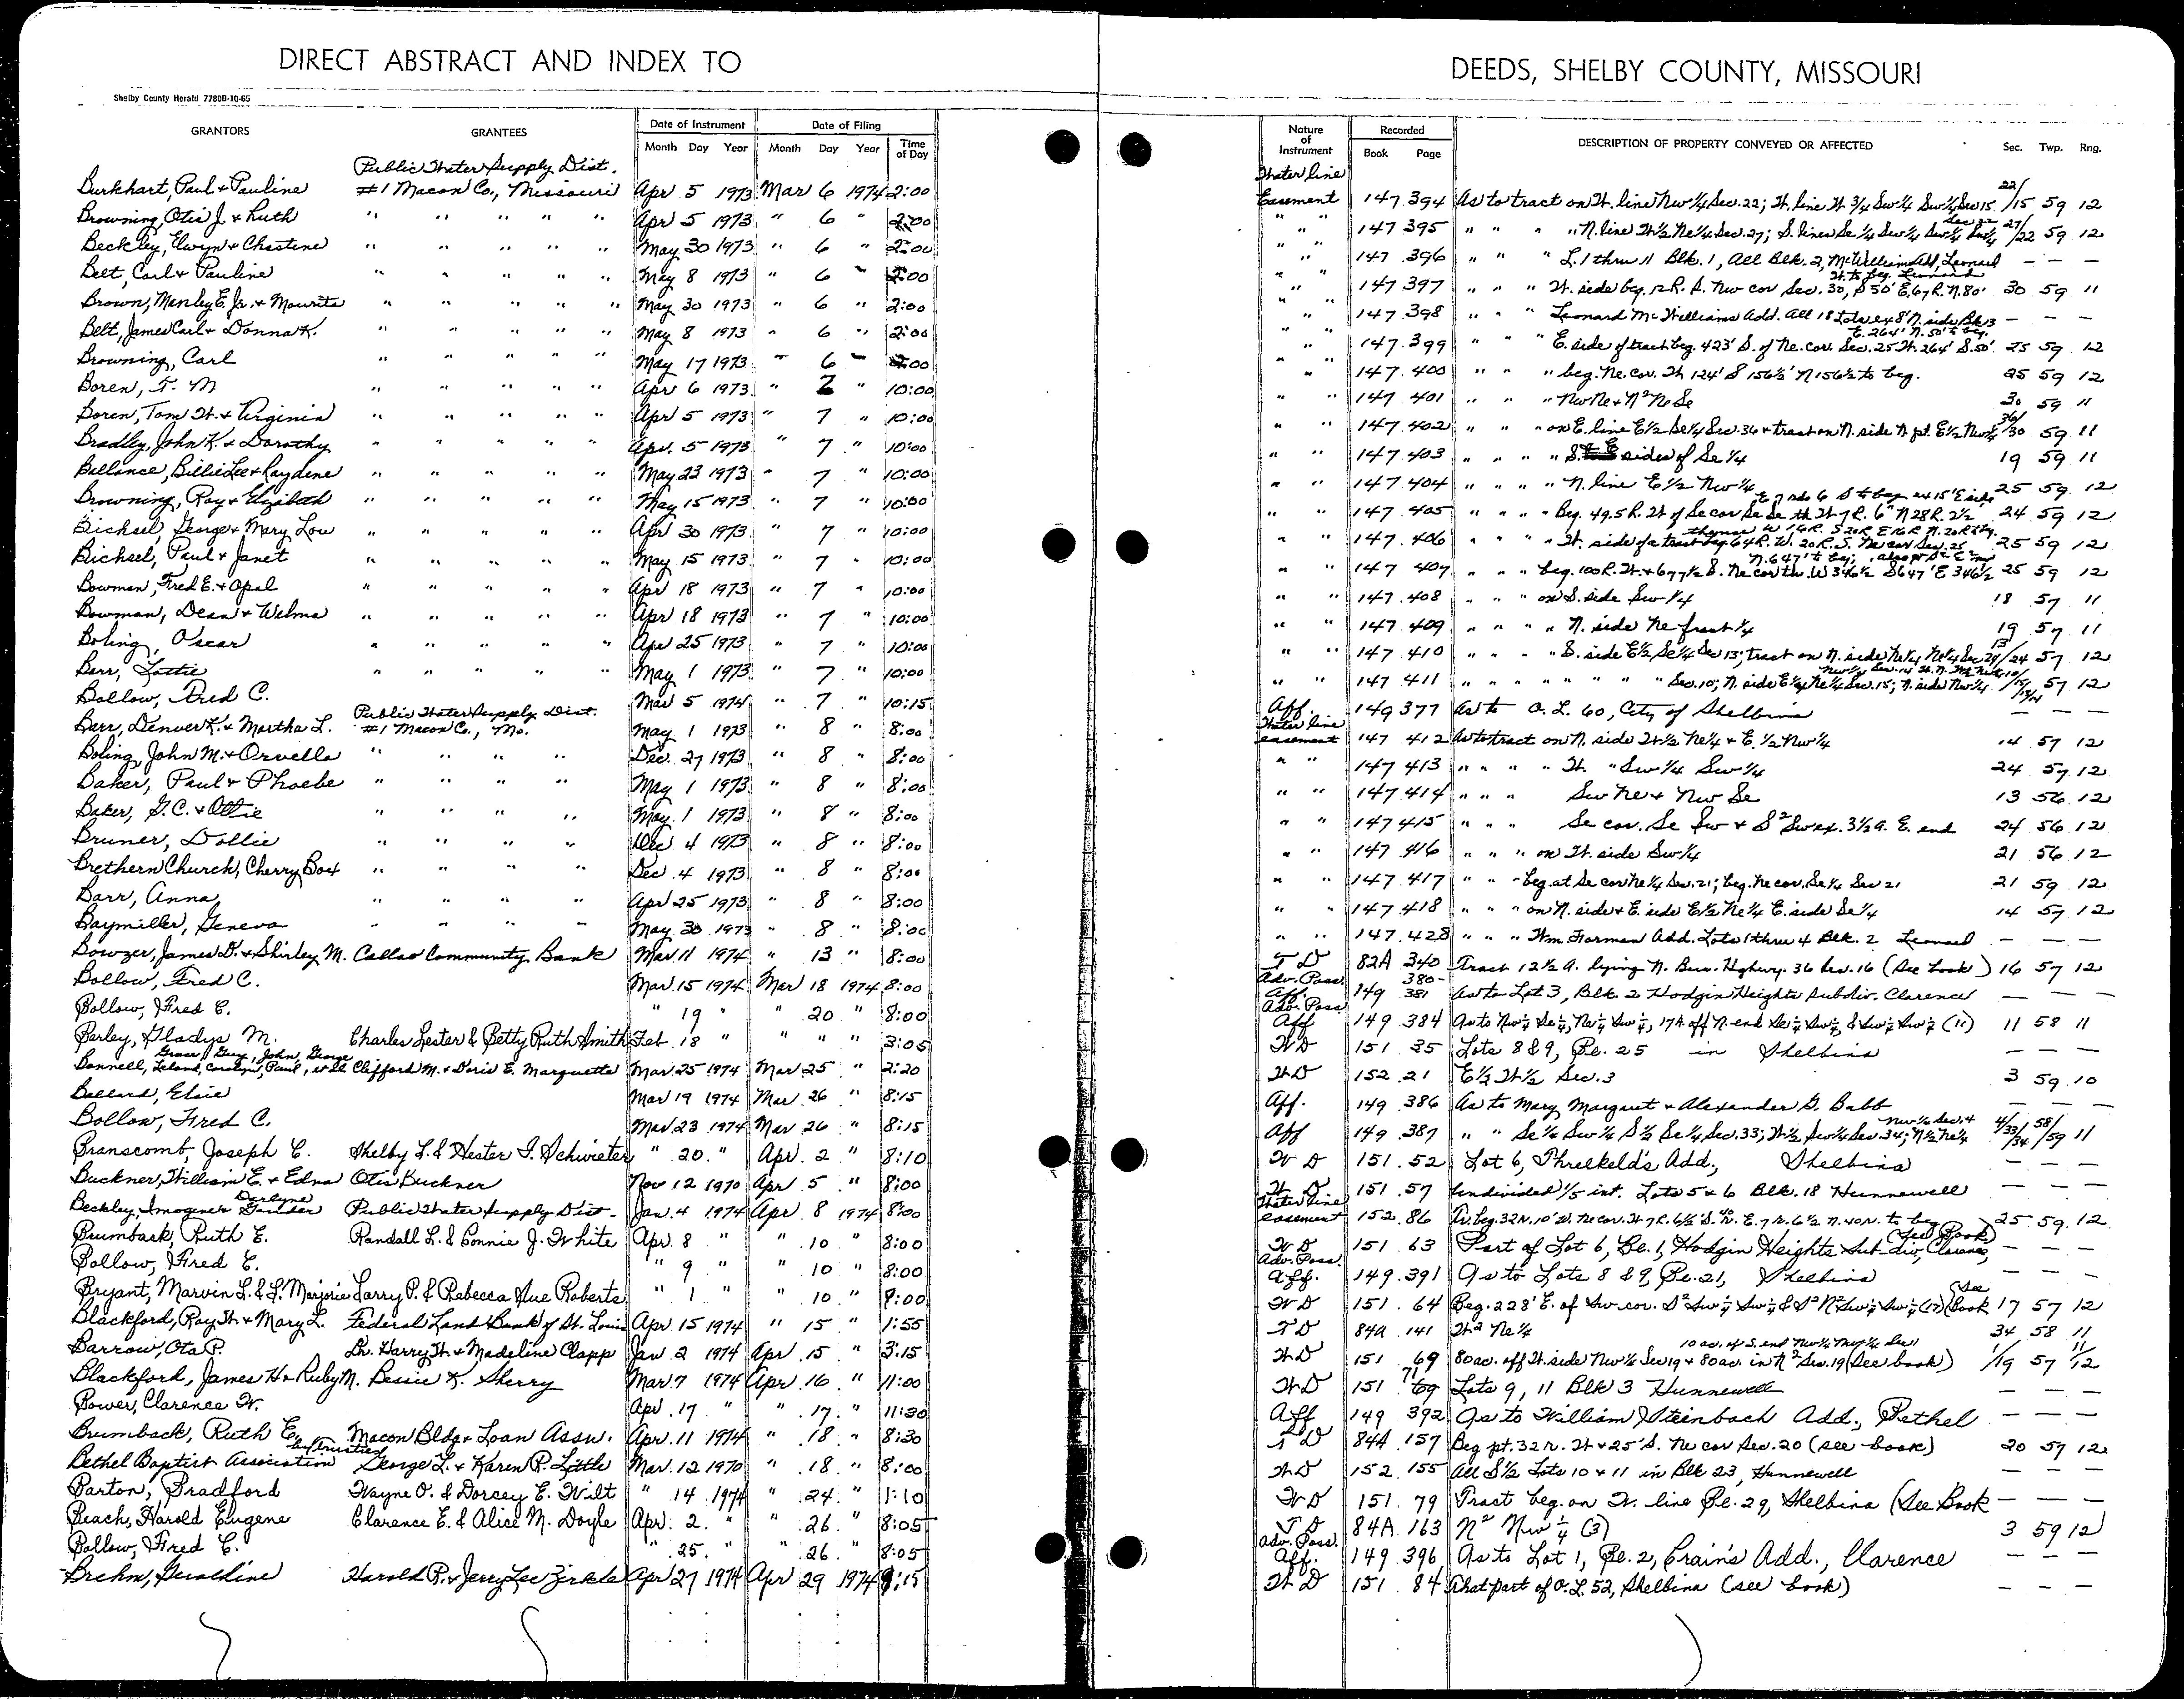 DIRECT ABSTRACT AND INDEX TO
DEEDS, SHELBY COUNTY, MISSOURI
Shelby County Herald 7780B-10-65
GRANTORS GRANTEES Date of Instrument Date of Filing Nature of Instrument Recorded DESCRIPTION OF PROPERTY CONVEYED OR AFFECTED Sec. Twp. Rng.
Month Day Year Month Day Year Time of Day Book Page
Public Water Supply Dist. Water line
Burkhart, Paul & Pauline #1 Macon Co., Missouri Apr 5 1973 Mar 6 1974 2:00 Easement 147 394 As to tract on W. line Nw 1/4 Sec. 22; W. line W. 3/4 Sw 1/4 Sw 1/4 Sec 15 22/15 59 12
Browning, Otis J. & Ruth " " " " " Apr 5 1973 " 6 " 2:00 " " 147 395 " " " " N. line W 1/2 Ne 1/4 Sec. 27; S. lines Se 1/4 Sw 1/4 Sw 1/4 Sw 1/4 Sec 22 27/22 59 12
Beckley, Elwyn & Chestine " " " " " May 30 1973 " 6 " 2:00 " " 147 396 " " " L. 1 thru 11 Blk. 1, All Blk. 2, McWilliam Add, Leonard — — —
Belt, Carl & Pauline " " " " " May 8 1973 " 6 " 2:00 " " 147 397 " " " W. side beg. 12 R. S. Nw cor Sec. 30, S 50' E. 67 R. N. 80' W. to beg. Leonard 30 59 11
Brown, Manley E. Jr. & Maurita " " " " " May 30 1973 " 6 " 2:00 " " 147 398 " " " Leonard McWilliams Add. All 18 Lots ex 8' N. side Blk 13 — — —
Belt, James Carl & Donna K. " " " " " May 8 1973 " 6 " 2:00 " " 147 399 " " " E. side of tract beg. 423' S. of Ne. cor. Sec. 25 W. 264' S. 50' E. 264' N. 50' to beg. 25 59 12
Browning, Carl " " " " " May 17 1973 " 6 " 2:00 " " 147 400 " " " beg. Ne. cor. W 124' S 156 1/2' N 156 1/2 to beg. 25 59 12
Boren, T. M " " " " " Apr 6 1973 " 7 " 10:00 " " 147 401 " " " Nw Ne & N² Ne Se 30 59 11
Boren, Tom W. & Virginia " " " " " Apr 5 1973 " 7 " 10:00 " " 147 402 " " " on E. line E 1/2 Se 1/4 Sec. 36 & tract on N. side N pt. E 1/2 Nw 1/4 36/30 59 11
Bradley, John K. & Dorothy " " " " " Apr. 5 1973 " 7 " 10:00 " " 147 403 " " " " S. & E sides of Se 1/4 19 59 11
Ballance, Billie Lee & Raydene " " " " " May 23 1973 " 7 " 10:00 " " 147 404 " " " " N. line E 1/2 Nw 1/4 25 59 12
Browning, Roy & Elizabeth " " " " " May 15 1973 " 7 " 10:00 " " 147 405 " " " " Beg. 49.5 R. W. of Se cor Se Se th W 7 R. 6" N 28 R. 2 1/2' 24 59 12
Bichsel, George & Mary Lou " " " " " Apr 30 1973 " 7 " 10:00 " " 147 406 " " " " W. side of a tract beg. 64 R. W. 20 R. S. Ne cor Sec. 25 thence W 16 R. S 20 R. E 16 R N. 20 R to beg. 25 59 12
Bichsel, Paul & Janet " " " " " May 15 1973 " 7 " 10:00 " " 147 407 " " " beg. 100 R. W. & 677 1/2 S. Ne cor th. W 346 1/2 S 647' E 346 1/2 N. 647' to beg; 25 59 12
Bowman, Fred E. & Opal " " " " " Apr 18 1973 " 7 " 10:00 " " 147 408 " " " on S. side Sw 1/4 18 57 11
Bowman, Dean & Welma " " " " " Apr 18 1973 " 7 " 10:00 " " 147 409 " " " " N. side Ne fract 1/4 19 57 11
Boling, Oscar " " " " " Apr 25 1973 " 7 " 10:00 " " 147 410 " " " " S. side E 1/2 Se 1/4 Sec 13; tract on N. side Ne 1/4 Ne 1/4 Sec 24 13/24 57 12
Barr, Lottie " " " " " May 1 1973 " 7 " 10:00 " " 147 411 " " " " " " " Sec. 10; N. side E 1/2 Ne 1/4 Sec. 15; N. side Nw 1/4 57 12
Bollow, Fred C. Mar 5 1974 " 7 " 10:15 Aff. 149 377 As to O. L. 60, City of Shelbina — — —
Public Water Supply Dist. Water line
Barr, Denver K. & Martha L. #1 Macon Co., Mo. May 1 1973 " 8 " 8:00 easement 147 412 As to tract on N. side W 1/2 Ne 1/4 & E. 1/2 Nw 1/4 14 57 12
Boling, John M. & Orvella " " " " Dec. 27 1973 " 8 " 8:00 " " 147 413 " " " " W. " Sw 1/4 Sw 1/4 24 57 12
Baker, Paul & Phoebe " " " " May 1 1973 " 8 " 8:00 " " 147 414 " " " Sw Ne & Nw Se 13 56 12
Baker, G. C. & Ottie " " " " May. 1 1973 " 8 " 8:00 " " 147 415 " " " Se cor. Se Sw & S² Sw ex. 3 1/2 a. E. end 24 56 12
Bruner, Dollie " " " " Dec 4 1973 " 8 " 8:00 " " 147 416 " " " on W. side Sw 1/4 21 56 12
Brethern Church, Cherry Box " " " " Dec. 4 1973 " 8 " 8:00 " " 147 417 " " " beg at Se cor Ne 1/4 Sec. 21; beg. Ne cor. Se 1/4 Sec 21 21 59 12
Barr, Anna " " " " Apr 25 1973 " 8 " 8:00 " " 147 418 " " " on N. side & E. side E 1/2 Ne 1/4 E. side Se 1/4 14 57 12
Baymiller, Geneva " " " " May 30 1973 " 8 " 8:00 " " 147 428 " " " Wm. Forman Add. Lots 1 thru 4 Blk. 2 Leonard — — —
Bowzer, James D. & Shirley M. Callao Community Bank Mar 11 1974 " 13 " 8:00 T D 82A 340 Tract 12 1/2 a. lying N. Bus. Highwy. 36 Sec. 16 (See book) 16 57 12
Bollow, Fred C. Mar. 15 1974 Mar 18 1974 8:00 Adv. Poss. Aff. 149 380-381 As to Lot 3, Blk. 2 Hodgin Heights Subdiv. Clarence — — —
Bollow, Fred C. " 19 " " 20 " 8:00 Adv. Poss Aff 149 384 As to Nw 1/4 Se 1/4, Ne 1/4 Sw 1/4, 17 A. off N. end Se 1/4 Sw 1/4, & Sw 1/4 Sw 1/4 (11) 11 58 11
Barley, Gladys M. Charles Lester & Betty Ruth Smith Feb. 18 " " " " 3:05 W D 151 35 Lots 8 & 9, Bl. 25 in Shelbina — — —
Grace, Guy, John, George
Bonnell, Leland, Carolyn, Paul, et al Clifford M. & Doris E. Marquette Mar. 25 1974 Mar 25 " 2:20 W D 152 21 E 1/2 W 1/2 Sec. 3 3 59 10
Ballard, Elsie Mar 19 1974 Mar. 26 " 8:15 Aff. 149 386 As to Mary Margaret & Alexander G. Babb — — —
Bollow, Fred C. Mar 23 1974 Mar 26 " 8:15 Aff 149 387 " " Se 1/4 Sw 1/4 S 1/2 Se 1/4 Sec. 33; W 1/2 Sw 1/4 Sec. 34; N 1/2 Ne 1/4 Nw 1/4 Sec. 4 4/33/34 58/59 11
Branscomb, Joseph C. Shelby L. & Hester I. Schwieter " 20. " Apr. 2 " 8:10 W D 151 52 Lot 6, Threlkeld's Add., Shelbina — — —
Buckner, William E. & Edna Otis Buckner Nov 12 1970 Apr 5 " 8:00 W. D 151 57 Undivided 1/5 int. Lots 5 & 6 Blk. 18 Hunnewell — — —
Beckley, Imogene & Darlyne Public Water Supply Dist. Jan. 4 1974 Apr. 8 1974 8:00 Water line easement 152 86 Tr. beg. 32 R. 10' W. Ne cor. W 7 R. 6 1/2' S. 40 R. E. 7 R. 6 1/2 N. 40 R. to beg 25 59 12
Brumback, Ruth E. Randall L. & Connie J. White Apr. 8 " " 10 " 8:00 W D 151 63 Part of Lot 6, Bl. 1, Hodgin Heights Sub-div, Clarence (See Book) — — —
Bollow, Fred C. " 9 " " 10 " 8:00 Adv. Poss. Aff. 149 391 As to Lots 8 & 9, Bl. 21, Shelbina — — —
Bryant, Marvin L. & L. Marjorie Larry P. & Rebecca Sue Roberts " 1 " " 10 " 9:00 W D 151 64 Beg. 228' E. of Sw cor. S² Sw 1/4 Sw 1/4 & S² N² Sw 1/4 Sw 1/4 (17) (See Book 17 57 12
Blackford, Ray W. & Mary L. Federal Land Bank of St. Louis Apr 15 1974 " 15 " 1:55 T D 84A 141 W² Ne 1/4 34 58 11
Barrow, Ota P. Dr. Harry W. & Madeline Clapp Jan 2 1974 Apr. 15 " 3:15 W D 151 69 80 ac. off W. side Nw 1/4 Sec 19 & 80 ac. in N² Sec. 19 (See book) 10 ac. of S. end Nw 1/4 Nw 1/4 Sec 1 1/19 57 11/12
Blackford, James H & Ruby M. Bessie K. Sherry Mar. 7 1974 Apr. 16 " 11:00 W D 151 71 Lots 9, 11 Blk 3 Hunnewell — — —
Bower, Clarence W. Apr. 17 " " 17. " 11:30 Aff 149 392 As to William Steinbach Add., Bethel — — —
Brumback, Ruth E. Macon Bldg & Loan Assn. Apr. 11 1974 " 18 " 8:30 T D 84A 157 Beg pt. 32 R. W & 25' S. Ne cor Sec. 20 (see book) 20 57 12
Bethel Baptist Association by trustees George L. & Karen P. Little Mar. 12 1970 " 18 " 8:00 W D 152 155 All S 1/2 Lots 10 & 11 in Blk 23, Hunnewell — — —
Barton, Bradford Wayne O. & Dorcey E. Wilt " 14 1974 " 24 " 1:10 W D 151 79 Tract beg. on W. line Bl. 29, Shelbina (See Book — — —
Beach, Harold Eugene Clarence E. & Alice M. Doyle Apr. 2. " " 26 " 8:05 T D 84A 163 N² Nw 1/4 (3) 3 59 12
Bollow, Fred C. " 25. " " 26 " 8:05 Adv. Poss. Aff. 149 396 As to Lot 1, Bl. 2, Crain's Add., Clarence — — —
Brehm, Geraldine Harold R. & Jerry Lee Zirkle Apr 27 1974 Apr 29 1974 9:15 W D 151 84 That part of O. L. 52, Shelbina (see book) — — —